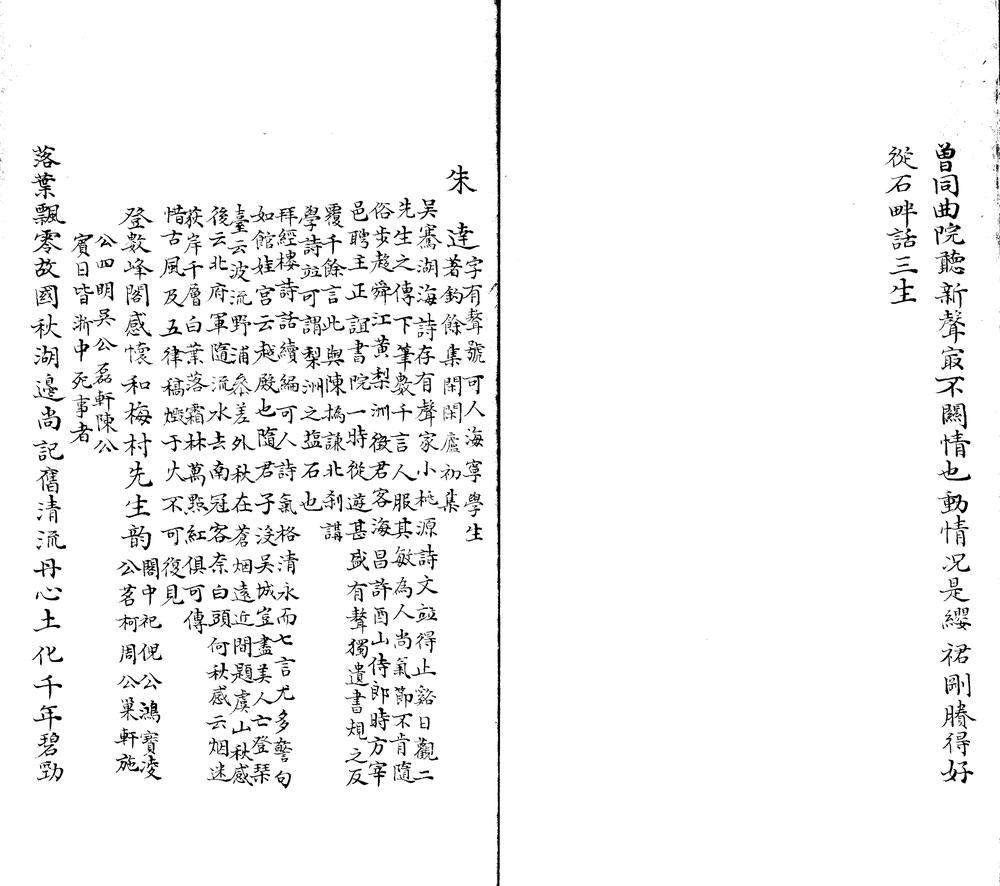 曾同曲院聽新聲㝡不關情也動情况是纓裙剛賸得好
從石畔話三生
朱達字有聲號可人海寧學生
著鈎餘集閑閑廬初集
吳騫湖海詩存有聲家小桃源詩文竝得止谿日觀二
先生之傳下筆數千言人服其敏為人尚氣節不肯隨
俗步趨舜江黄梨洲徵君客海昌許酉山侍郎時方宰
邑聘主正誼書院一時從遊甚盛有聲獨遺書規之反
覆千餘言此與陳撝謙北刹講
學詩竝可謂梨洲之藍石也
拜經樓詩話續編可人詩氣格清永而七言尤多警句
如館娃宫云越殿也隨君子沒吳城豈盡美人亡登琹
臺云波流野浦叅差外秋在蒼烟遠近間題虞山秋感
後云北府軍隨流水去南冠客奈白頭何秋感云烟迷
荻岸千層白葉落霜林萬㸃紅俱可傳
惜古風及五律稿燬于火不可復見
登數峰閣感懷和梅村先生韵閣中祀倪公鴻寶凌
公茗柯周公巢軒施
公四明吳公磊軒陳公
賓日皆浙中死事者
落葉飄零故國秋湖邉尚記舊清流丹心土化千年碧勁